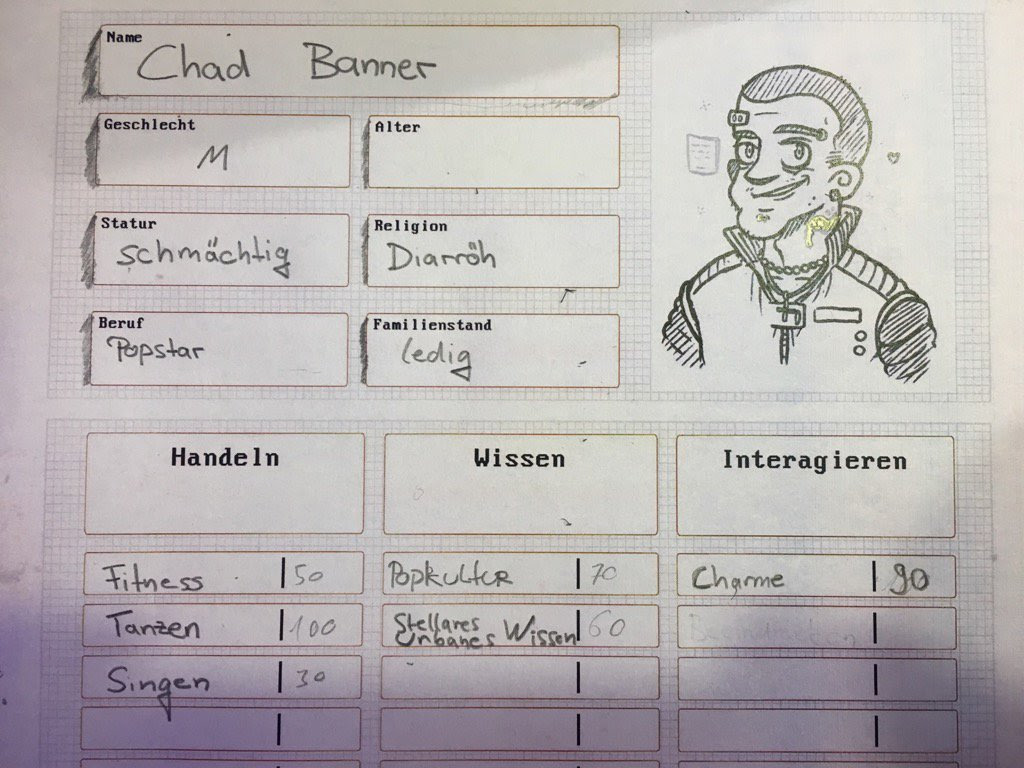 Name
Chad Banner
Geschlecht
M
Alter
Statur
schmächtig
Religion
Diarröh
Beruf
Popstar
Familienstand
ledig
Handeln
Wissen
Interagieren
Fitness 50
Popkultur 70
Charme 90
Tanzen 100
Stellares
Urbanes Wissen 60
Singen 30